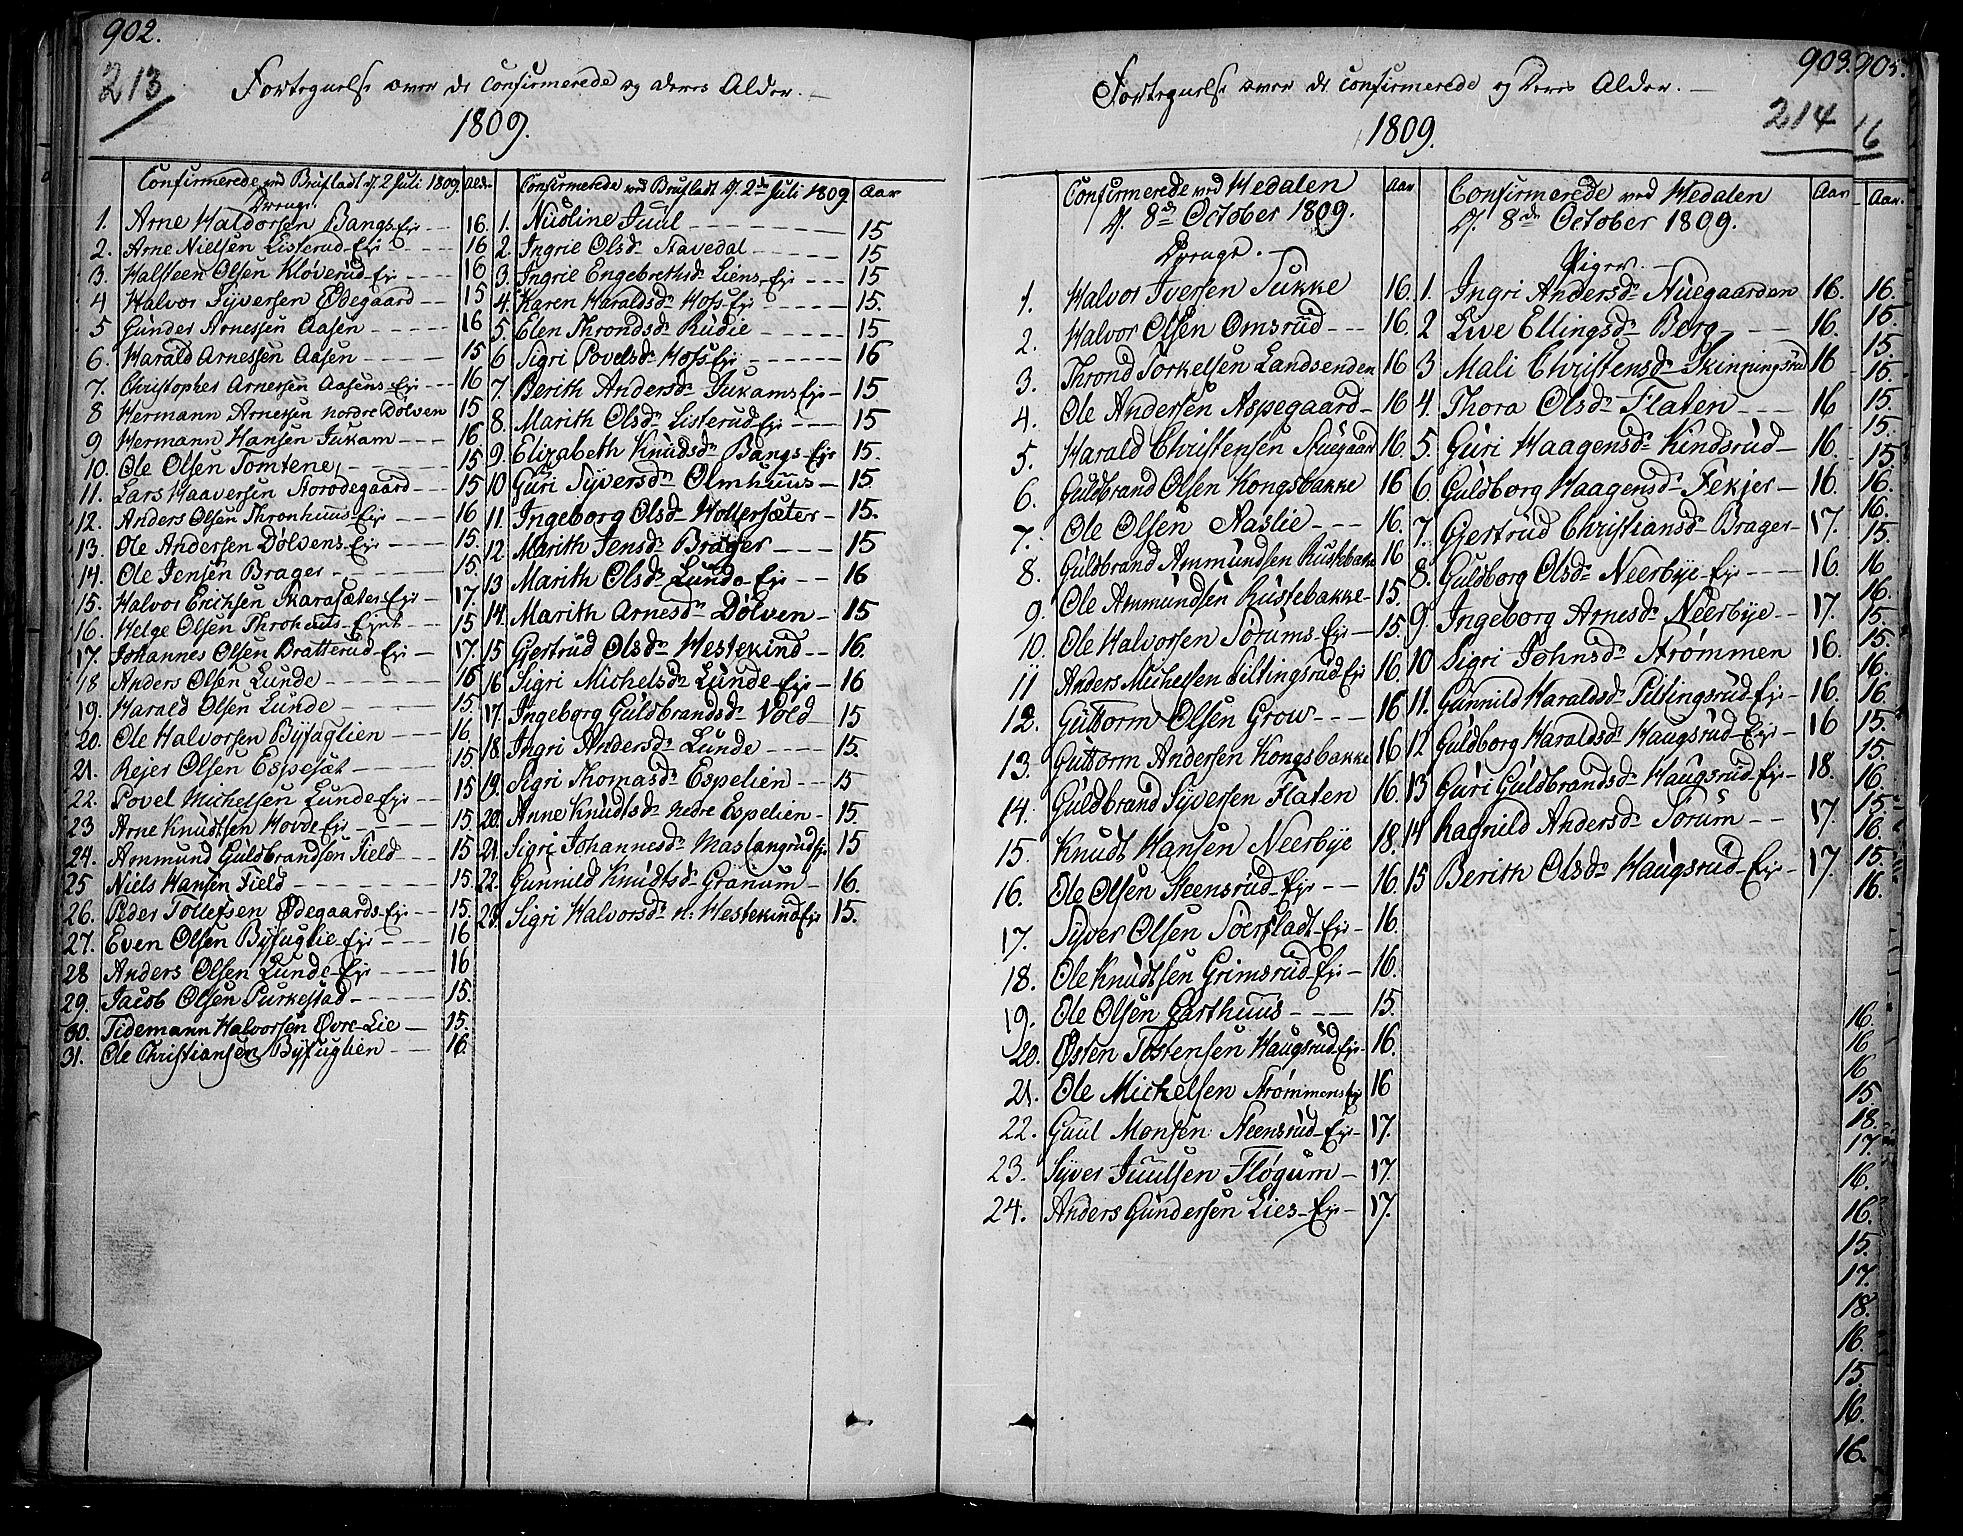 902.
213
Fortegnelse over de Confirmerede og deres Alder.
1809.
Confirmerede ved Brufladt d. 2 Juli 1809. Alder
Drenge
1. Arne Haldorsen Bangs-Eje 16.
2. Arne Nielsen Listerud-Eje 16
3. Halsteen Olsen Kløverud-Eje 16
4 Halvor Syversen Ødegaard 15
5 Gunder Arnessen Aasen 16
6. Harald Arnessen Aasen 15
7. Christopher Arnessen Aasens-Eje 16
8 Hermann Arnessen nordre Dølven 15
9 Hermann Hansen Jukam 16.
10. Ole Olsen Tomtene 15
11. Lars Haaversen Storødegaard 15
12. Anders Olsen Thronhuus-Eje 16
13. Ole Andersen Dølvens-Eje 15.
14. Ole Jensen Brager 15.
15. Halvor Erichsen Skarasæter-Eje 17.
16. Helge Olsen Throhuus-Ejet 15
17. Johannes Olsen Bratterud-Eje 17.
18 Anders Olsen Lunde 16
19. Harald Olsen Lunde 15.
20. Ole Halvorsen Byfuglien 16.
21. Rejer Olsen Espeset 15.
22. Povel Michelsen Lunde-Eje 15
23 Arne Knudtsen Hovde Eje 15.
24. Ammund Guldbrandsen Field 15
25 Niels Hansen Field 15.
26. Peder Tollefsen Ødegaards-Eje 15.
27. Even Olsen Byfuglie-Eje 16
28 Anders Olsen Lunde-Eje 16
29. Jacob Olsen Purkestad 15.
30. Tidemann Halvorsen Øvre-Lie 15.
31. Ole Christiansen Byfuglien 16.
Confirmerede ved Brufladt d. 2de Juli 1809 Aar
1. Nicoline Juul 15
2. Ingrie Olsdr Stavedal 15
3. Ingrie Engebrethsdr Liens-Eje 15
4. Karen Haraldsdr Hofs-Eje 15.
5. Elen Throndsdr Rudie 15
6 Sigri Povelsdr Hofs-Eje 16
7. Berith Andersdr Jukams Eje 15
8. Marith Olsdr Listerud Eje 15
9. Elizabeth Knudsdr Bangs-Eje 15.
10 Guri Syversdr Olmhuus 15
11. Ingeborg Olsdr Hollersæter 15.
12. Marith Jensdr Brager 15
13 Marith Olsdr Lunde Eje 16
14. Marith Arnesdr Dølven 15
15 Gjertrud Olsdr Hestekind 16.
16 Sigri Michelsdr Lunde-Eje 16
17. Ingeborg Guldbrandsdr Vold 15
18. Ingri Andersdr Lunde 15.
19. Sigri Thomasdr Espelien 15
20. Anne Knudtsdr nedre Espelien 15.
21. Sigri Johannesdr Maslangrud Eje 15
22. Gunnild Knudtsdr Granum 16.
23. Sigri Halvorsdr n: Hestekind Eje 15.
903.
214
Fortegnelse over de Confirmerede og Deres Alder.
1809.
Confirmerede ved Hedalen Aar
d. 8de October 1809.
Drenge.
1. Halvor Iversen Sukke 16.
2. Halvor Olsen Omsrud 16.
3. Thrond Torkelsen Landsenden 16
4. Ole Andersen Aspegaard 16
5. Harald Christensen Nuegaard 16.
6. Guldbrand Olsen Kongsbakke 16
7. Ole Olsen Aaslie 16.
8. Guldbrand Ammundsen Rustebakke 16
9. Ole Ammundsen Rustebakke 15.
10. Ole Halvorsen Sørums-Eje 15.
11 Anders Michelsen Piltingsrud Eje 16.
12. Guttorm Olsen Grow 16
13. Guttorm Andersen Kongsbakke 16
14. Guldbrand Syversen Flaten 16.
15. Knudt Hansen Neerbye 18.
16. Ole Olsen Steensrud-Eje 16.
17. Syver Olsen Søerfladt-Eje 16.
18. Ole Knudtsen Grimsrud Eje 16.
19. Ole Olsen Garthuus 15.
20. Østen Tostensen Haugsrud-Eje 16.
21. Ole Mickelsen Strømmens Eje 16
22. Guul Monsen Steensrud-Eje 17.
23. Syver Juulsen Fløgum 17.
24. Anders Gundersen Lies-Eje 17.
Confirmerede ved Hedalen Aar
d. 8de October 1809.
Piger.
1. Ingri Andersdr Nuegaarden 16.
2 Live Ellingsdr Berg 16.
3 Mali Christensdr Skinningsrud 16
4. Thora Olsdr Flaten 16
5. Guri Haagensdr Kindsrud 16.
6. Guldborg Haagensdr Fekjer 16.
7. Gjertrud Christiansdr Brager 17.
8. Guldborg Olsdr Neerbye-Eje 16.
9. Ingeborg Arnesdr Neerbye 17.
10 Sigri Johnsdr Strømmen 16.
11. Gunnild Haraldsdr Piltingsrud-Eje 16.
12 Guldborg Haraldsdr Haugsrud-Eje 16
13 Guri Guldbrandsdr Haugsrud-Eje 18.
14 Ragnild Andersdr Sørum 17.
15 Berith Olsdr Haugsrud-Eje 17.
905.
16
Aar.
16.
15.
15.
15.
15.
15.
15.
16.
16.
15.
16
16.
15.
15.
16.
16.
15.
15.
16.
15.
16.
15.
16.
16.
16
16
15.
18.
17.
16.
16.
15.
17.
18.
16.
15.
16.
16.